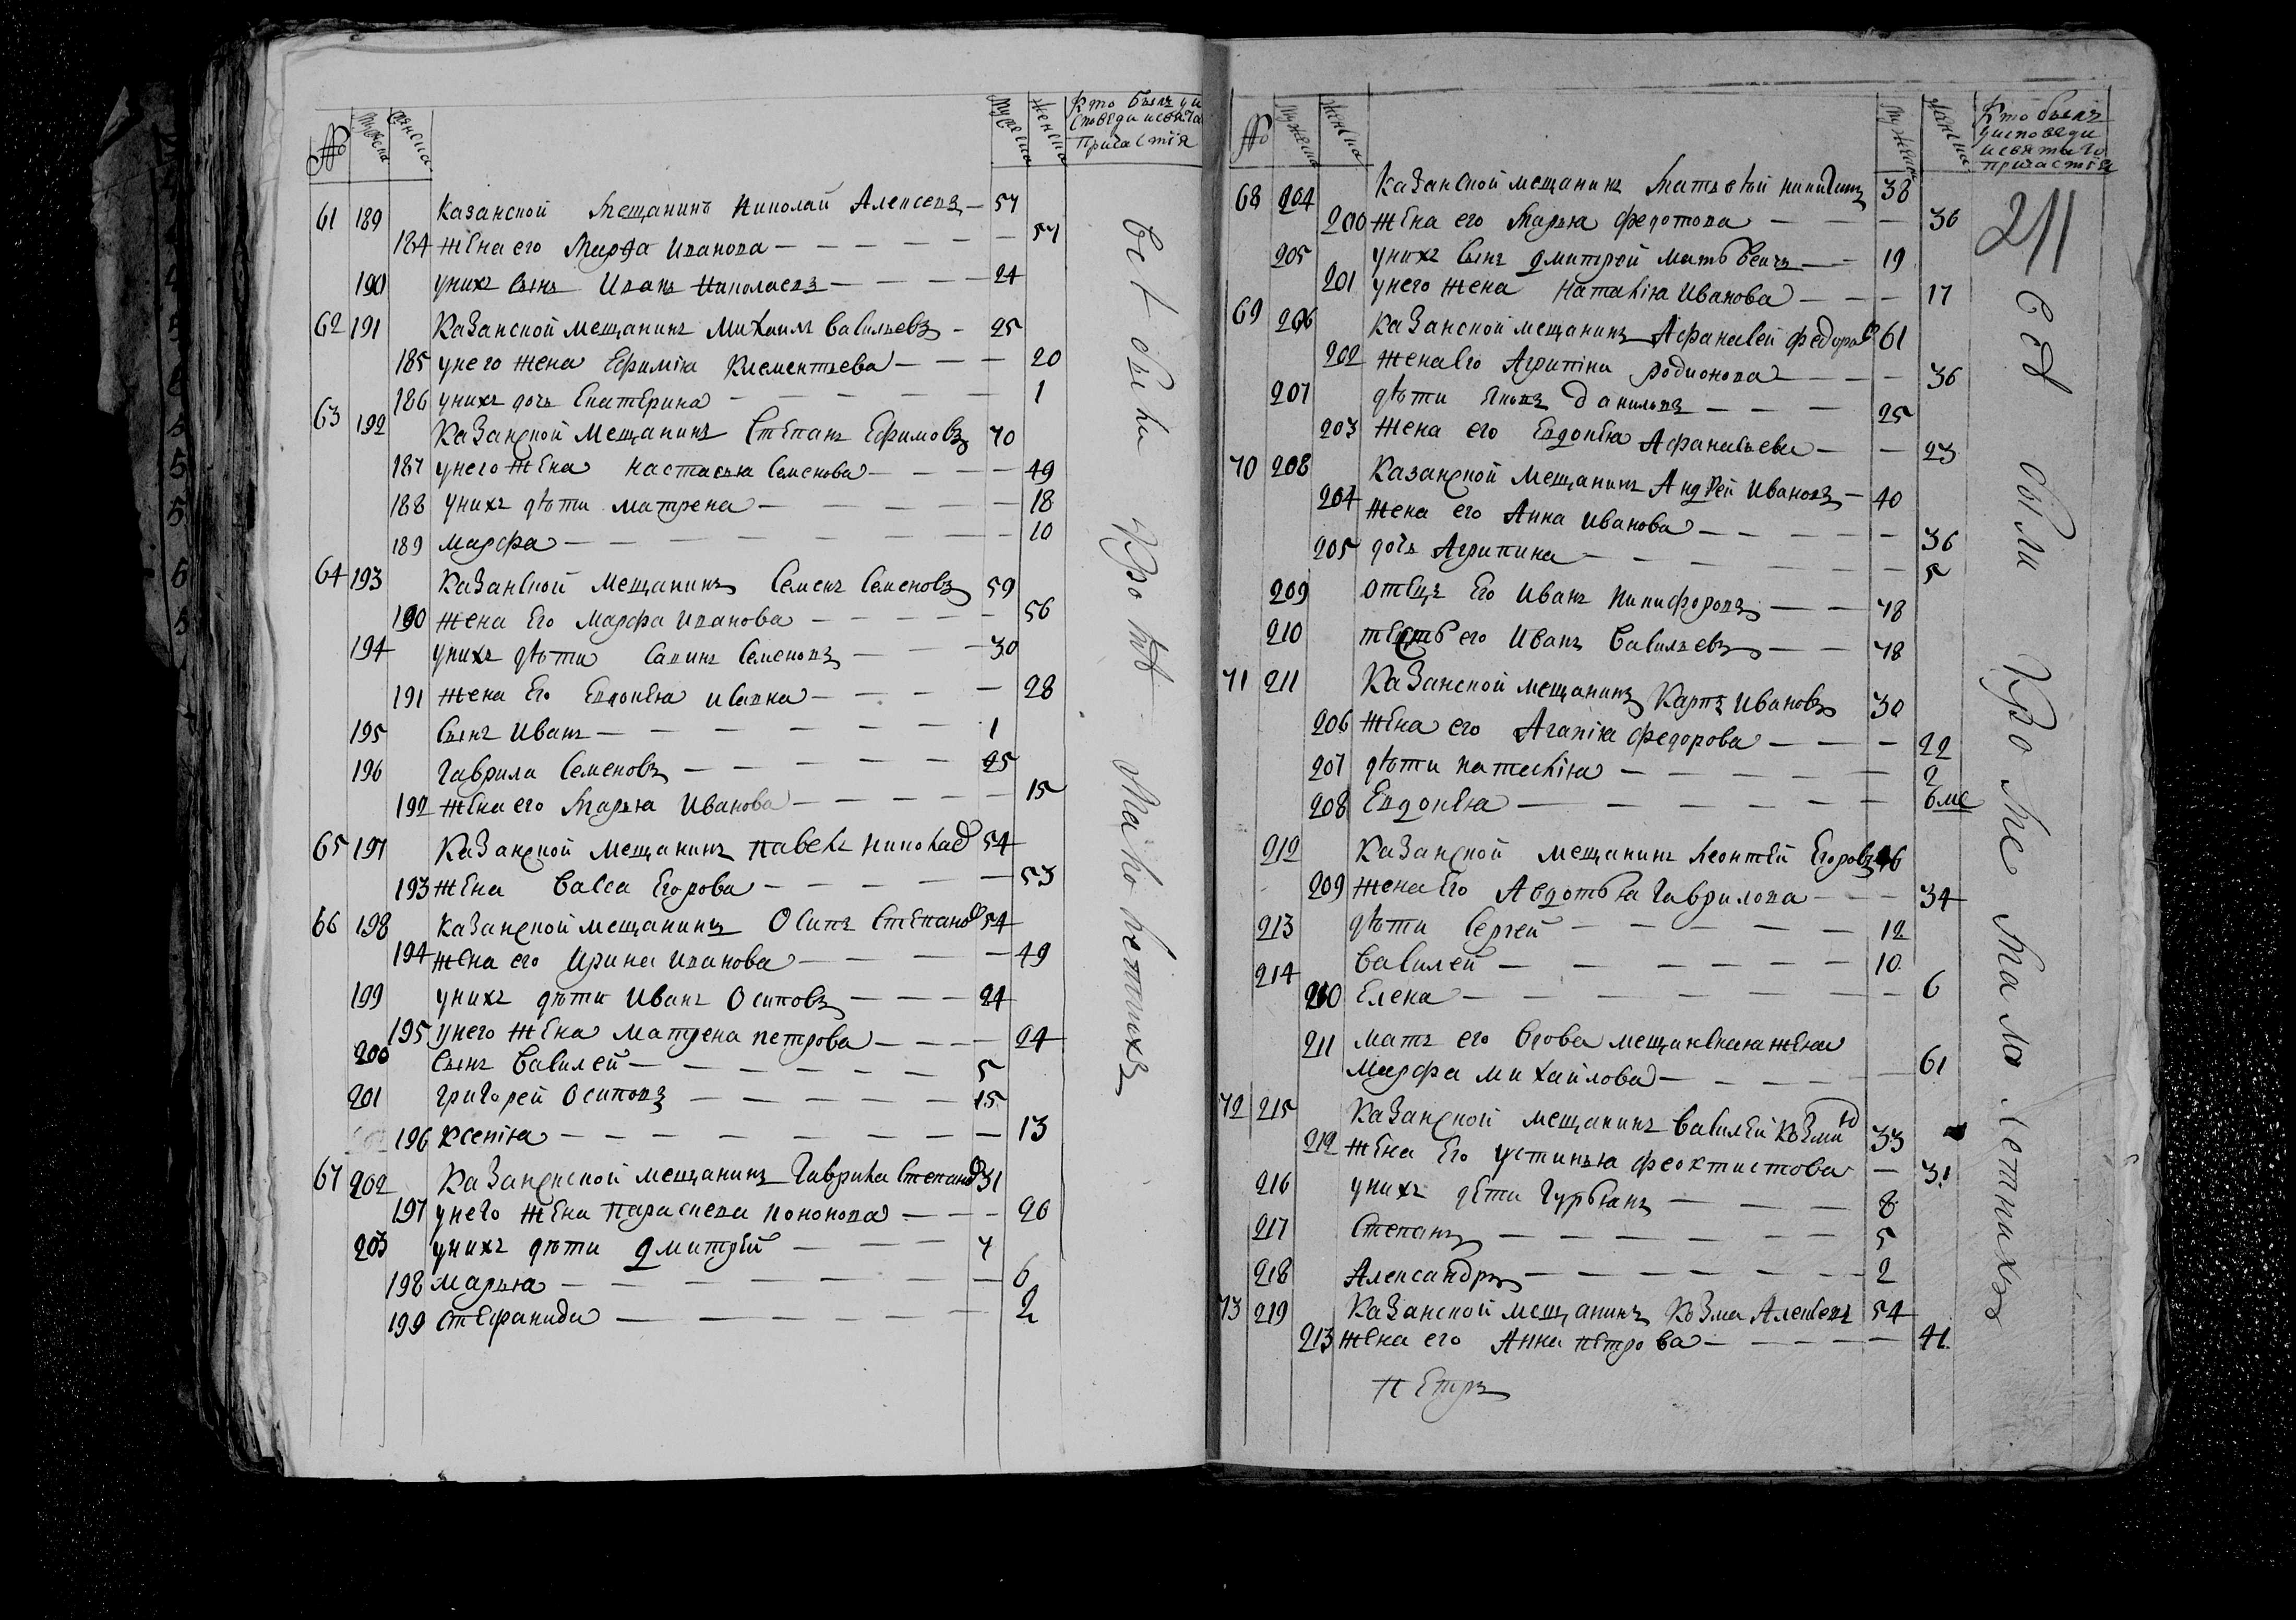 № мужеска женска мужеска женска Кто былъ у исповеди и свята причастія
61 189 Казанской мещанинъ Николай Алексевъ — 57
184 жена его Марфа Иванова — 57
190 у нихъ сынъ Иванъ Николаевъ — 24
62 191 Казанской мещанинъ Михаилъ Васильевъ — 25
185 у него жена Ефимія Клементьева — 20
186 у нихъ дочь Екатерина — 1
63 192 Казанской мещанинъ Степанъ Ефимовъ 70
187 у него жена Настасья Семенова — 49
188 у нихъ дѣти матрена — 18
189 марфа — 10
64 193 Казанской мещанинъ Семенъ Семеновъ 59
190 жена Его марфа Иванова — 56
194 у нихъ дѣти Савинъ Семеновъ — 30
191 жена Его Евдокея — 28
195 сынъ Иванъ — 1
196 гаврила Семеновъ — 25
192 жена его Марья Иванова — 15
65 197 Казанской мещанинъ павелъ 54
193 жена Васса Егорова — 53
66 198 Казанской мещанинъ Осипъ Степановъ 54
194 жена его Ирина Иванова — 49
199 у нихъ дѣти Иванъ Осиповъ — 24
195 у него жена матрена петрова — 24
200 сынъ Василей — 5
201 григорей Осиповъ — 15
196 Ксенія — 13
67 202 Казанской мещанинъ Гаврила Степановъ 31
197 у него жена параскева — 26
203 у нихъ дѣти дмитрей — 7
198 марья — 6
199 степанида — 2
всѣ были кромѣ малолетнихъ
№ мужеска женска мужеска женска Кто былъ у исповеди и святыго причастія
211
68 204 Казанской мещанинъ Матвѣй никитинъ 38
200 жена его Марья федотова — 36
205 у нихъ сынъ дмитрей матвѣевъ — 19
201 у него жена Наталія Иванова — 17
69 206 Казанской мещанинъ Афанасей федоровъ 61
202 жена его Агрипина родионова — 36
207 дѣти Яковъ Даниловъ — 25
203 жена его Евдокея Афанасьева — 23
70 208 Казанской мещанинъ Андрей Ивановъ — 40
204 жена его Анна Иванова — 36
205 дочь Агрипина — 5
209 отецъ Его Иванъ Никифоровъ — 78
210 тесть его Иванъ Васильевъ — 78
71 211 Казанской мещанинъ Карпъ Ивановъ 30
206 жена его Агапія федорова — 22
207 дѣти наталія — 2
208 Евдокея — 6 ме
212 Казанской мещанинъ Леонтей Егоровъ 46
209 жена Его Авдотья Гаврилова — 34
213 дѣти Сергей — 12
214 василей — 10
210 Елена — 6
211 мать его вдова мещанская жена
марфа михайлова — 61
72 215 Казанской мещанинъ василей Козминъ 33
212 жена Его устинья феоктистова — 31
216 у нихъ дети Гурьянъ — 8
217 Степанъ — 5
218 Александръ — 2
73 219 Казанской мещанинъ Козма Алексевъ 54
213 жена его Анна петрова — 41
петръ
всѣ были кроме малолетнихъ